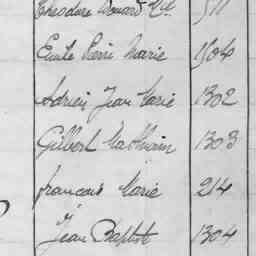 Theodore Edouard
Emile Pierre Marie 1504
Adrien Jean Marie 1302
Gilbert Mathurin 1303
francois Marie 214
Jean Baptiste 1304